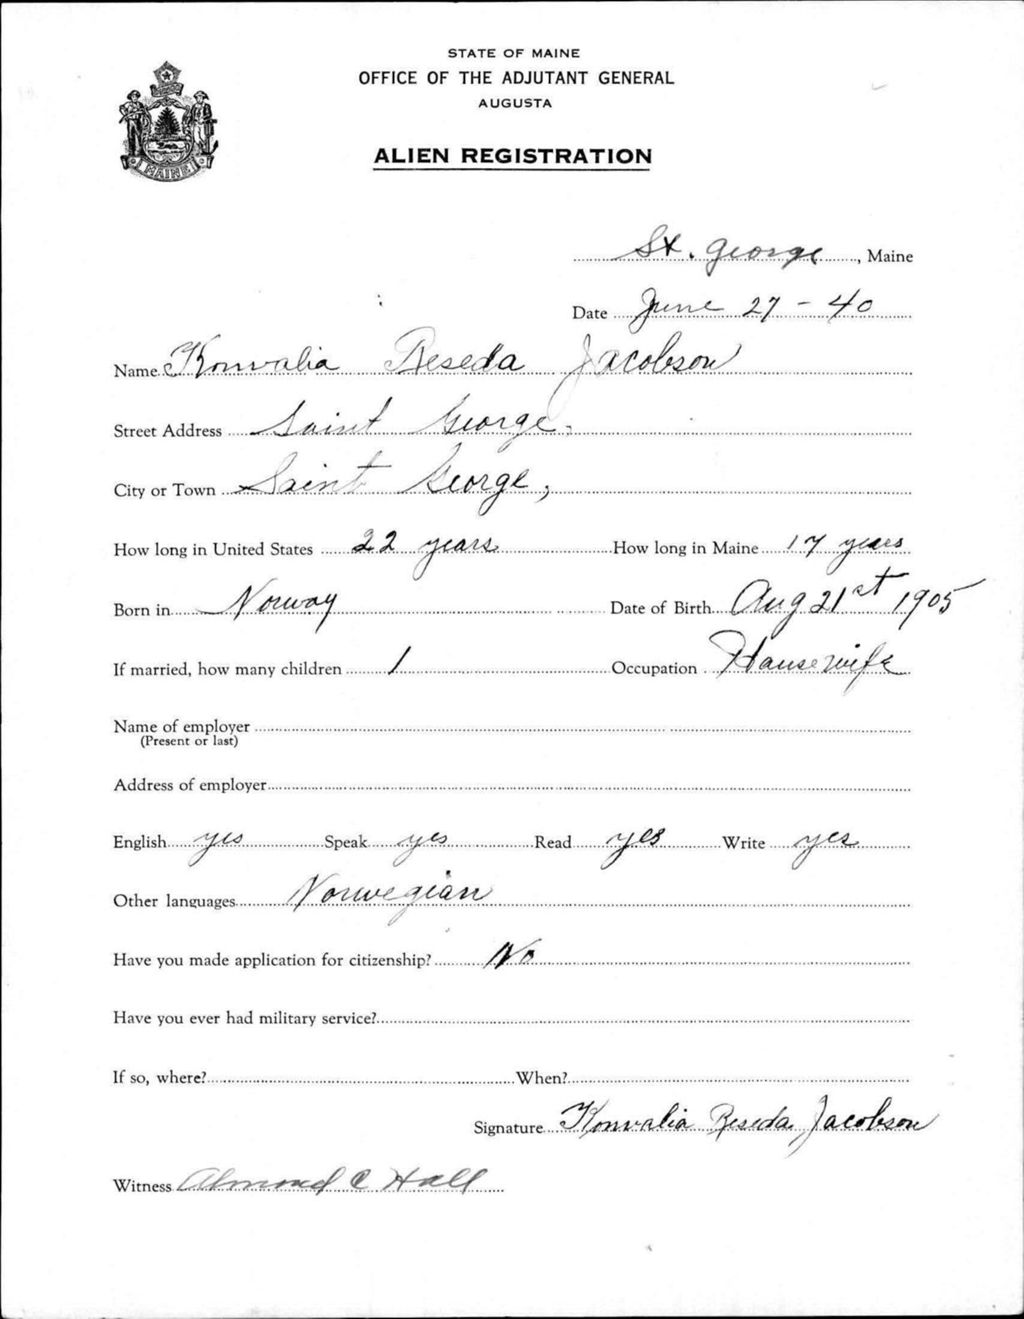 STATE OF MAINE
OFFICE OF THE ADJUTANT GENERAL
AUGUSTA
ALIEN REGISTRATION
MAINE
St. George, Maine
Date June 27 - 40
Name Konvalia Reseda Jacobson
Street Address Saint George.
City or Town Saint George,
How long in United States 22 years How long in Maine 17 years
Born in Norway Date of Birth Aug 21st 1905
If married, how many children 1 Occupation Housewife
Name of employer
(Present or last)
Address of employer
English yes Speak yes Read yes Write yes
Other languages Norwegian
Have you made application for citizenship? No
Have you ever had military service?
If so, where? When?
Signature Konvalia Reseda Jacobson
Witness Almond C Hall